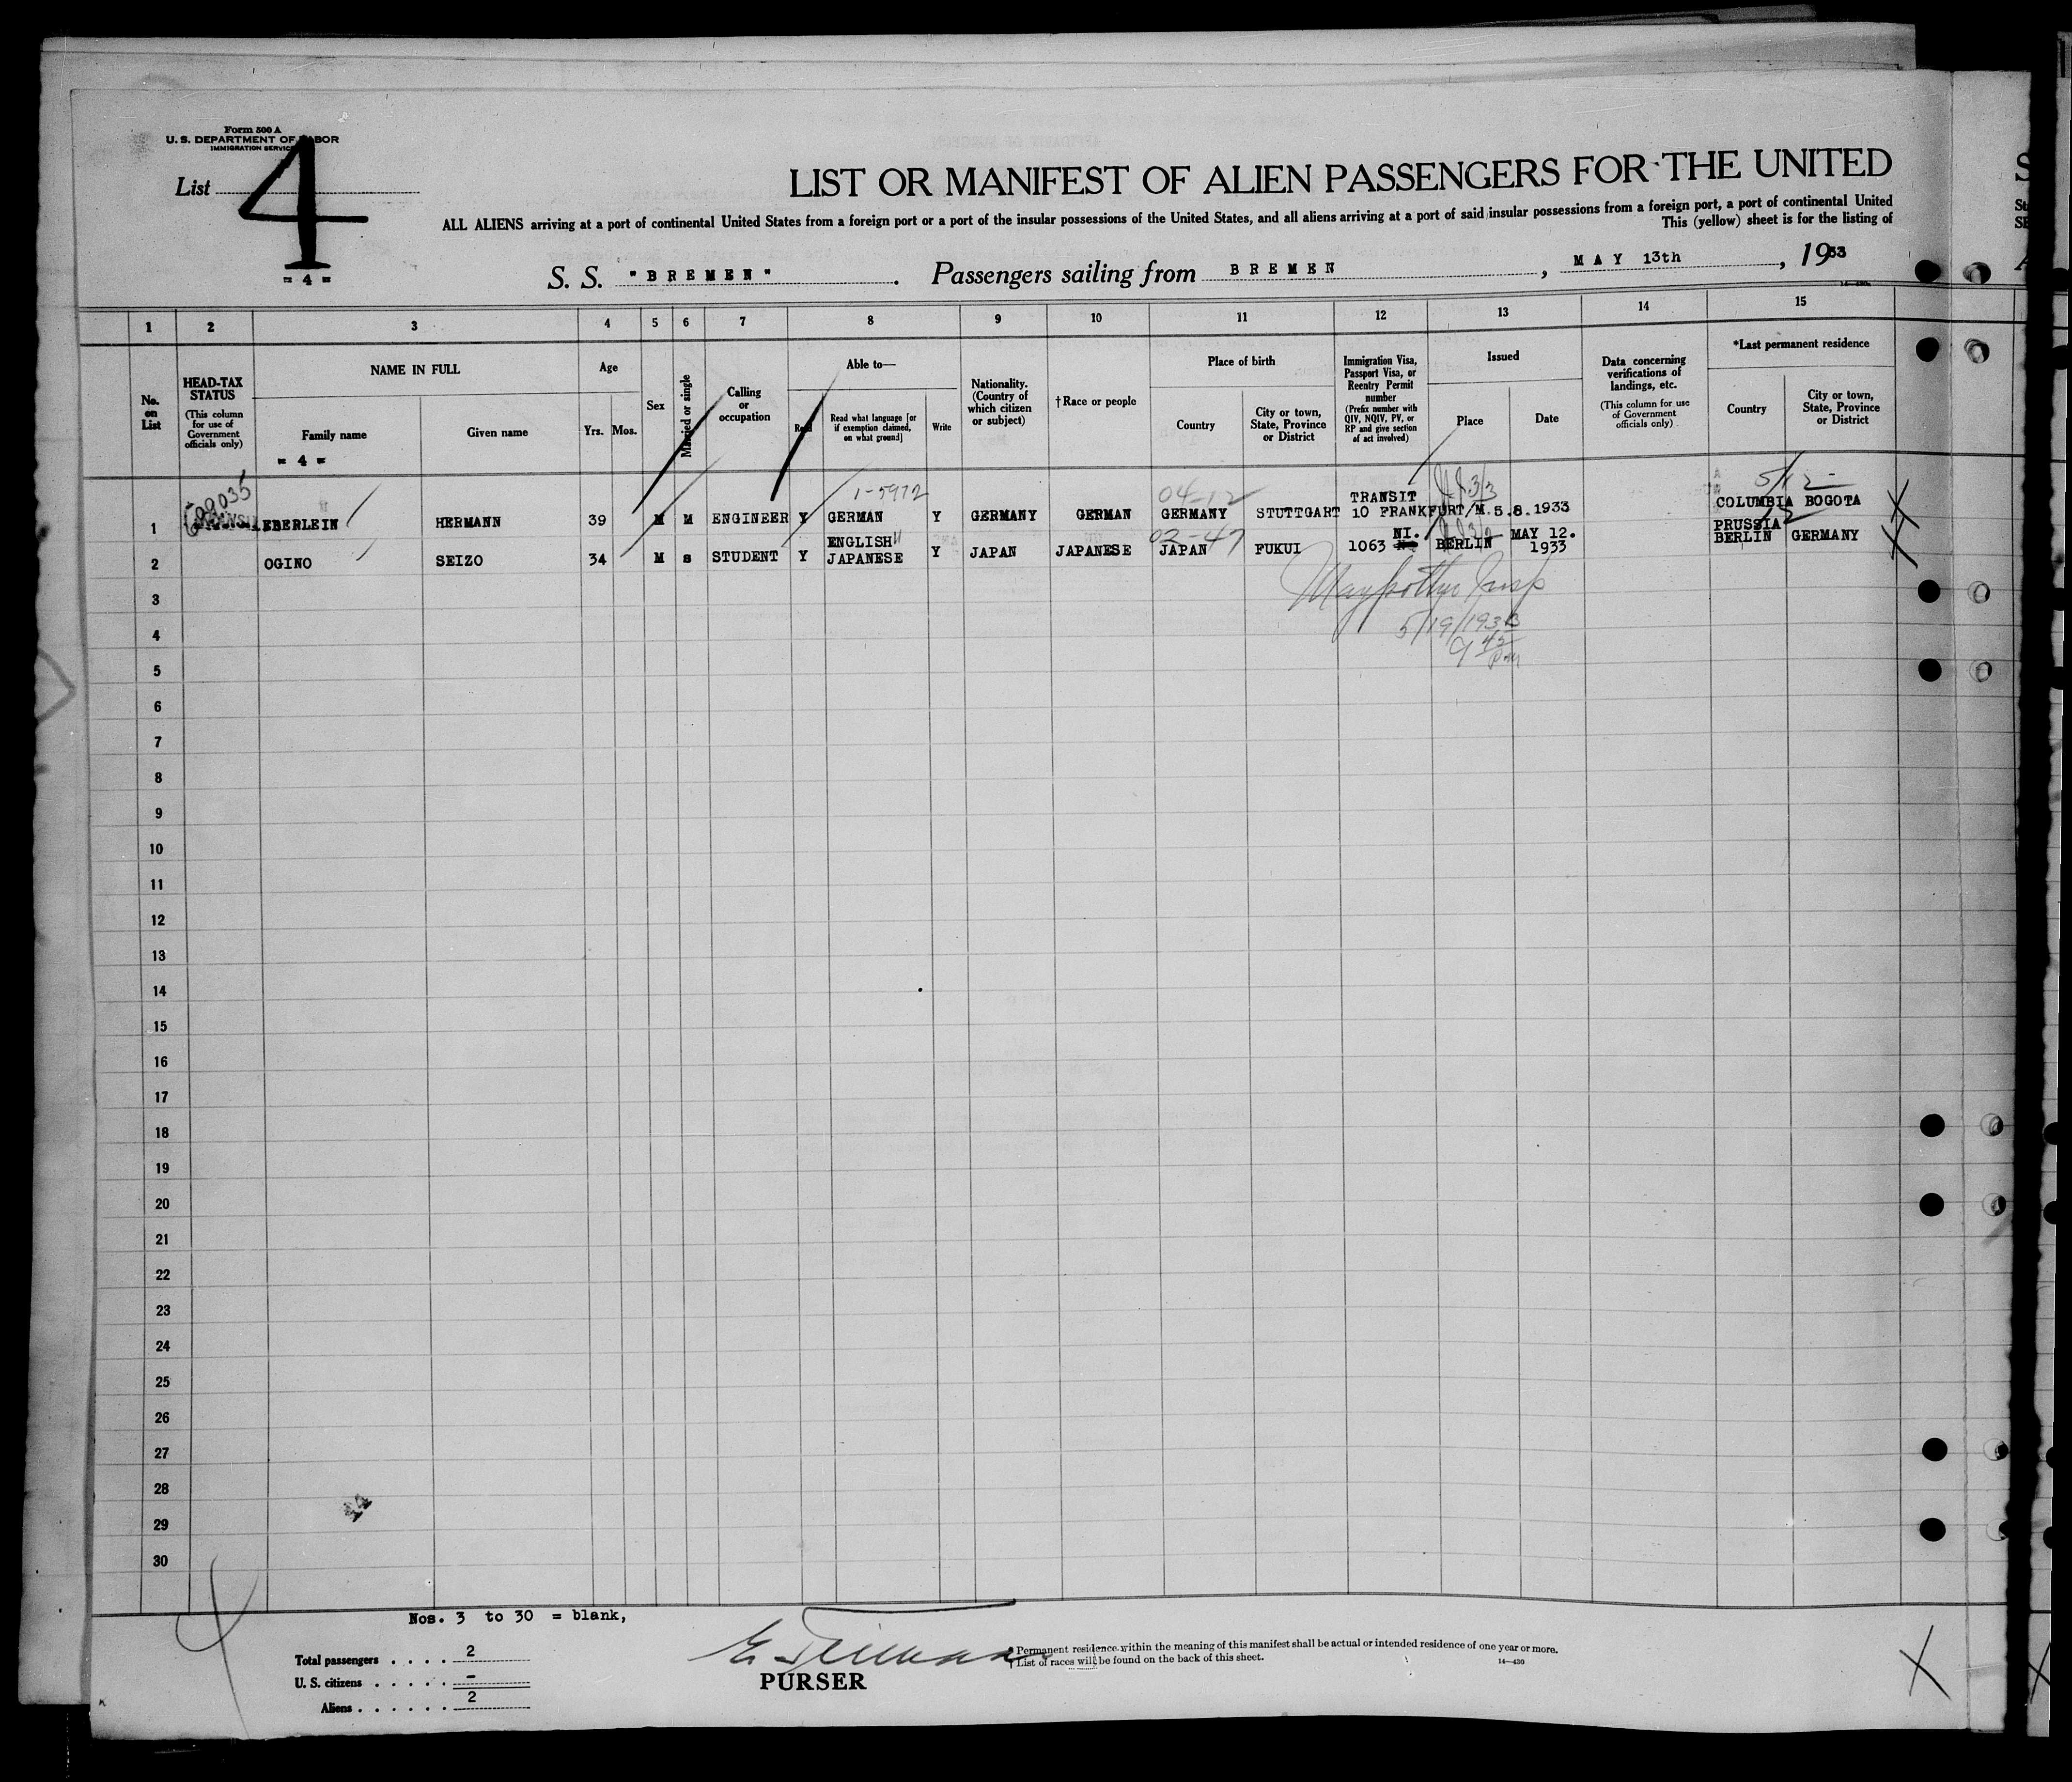 Form 500 A
U. S. DEPARTMENT OF LABOR
IMMIGRATION SERVICE
List 4
= 4 =
LIST OR MANIFEST OF ALIEN PASSENGERS FOR THE UNITED
ALL ALIENS arriving at a port of continental United States from a foreign port or a port of the insular possessions of the United States, and all aliens arriving at a port of said insular possessions from a foreign port, a port of continental United
This (yellow) sheet is for the listing of
S. S. "BREMEN". Passengers sailing from BREMEN, MAY 13th, 1933
1 2 3 4 5 6 7 8 9 10 11 12 13 14 15
No. on List
HEAD-TAX STATUS
(This column for use of Government officials only)
NAME IN FULL
Family name
Given name
= 4 =
Age
Yrs. Mos.
Sex
Married or single
Calling or occupation
Able to—
Read
Read what language [or if exemption claimed, on what ground]
Write
Nationality. (Country of which citizen or subject)
†Race or people
Place of birth
Country
City or town, State, Province or District
Immigration Visa, Passport Visa, or Reentry Permit number
(Prefix number with QIV, NQIV, PV, or RP and give section of act involved)
Issued
Place
Date
Data concerning verifications of landings, etc.
(This column for use of Government officials only)
*Last permanent residence
Country
City or town, State, Province or District
609035 1-5972 04-12 TRANSIT 5/12
1 EBERLEIN HERMANN 39 M M ENGINEER Y GERMAN Y GERMANY GERMAN GERMANY STUTTGART 10 FRANKFURT/M. 5.8.1933 COLUMBIA BOGOTA
ENGLISH 02-47 NI. MAY 12. PRUSSIA
2 OGINO SEIZO 34 M s STUDENT Y JAPANESE Y JAPAN JAPANESE JAPAN FUKUI 1063 BERLIN 1933 BERLIN GERMANY
3
4 5/19/1933
5 9 45 pm
6
7
8
9
10
11
12
13
14
15
16
17
18
19
20
21
22
23
24
25
26
27
28
29
30
Nos. 3 to 30 = blank,
Total passengers . . . . 2
U. S. citizens . . . . . –
Aliens . . . . . . 2
PURSER
* Permanent residence within the meaning of this manifest shall be actual or intended residence of one year or more.
† List of races will be found on the back of this sheet.
14—430